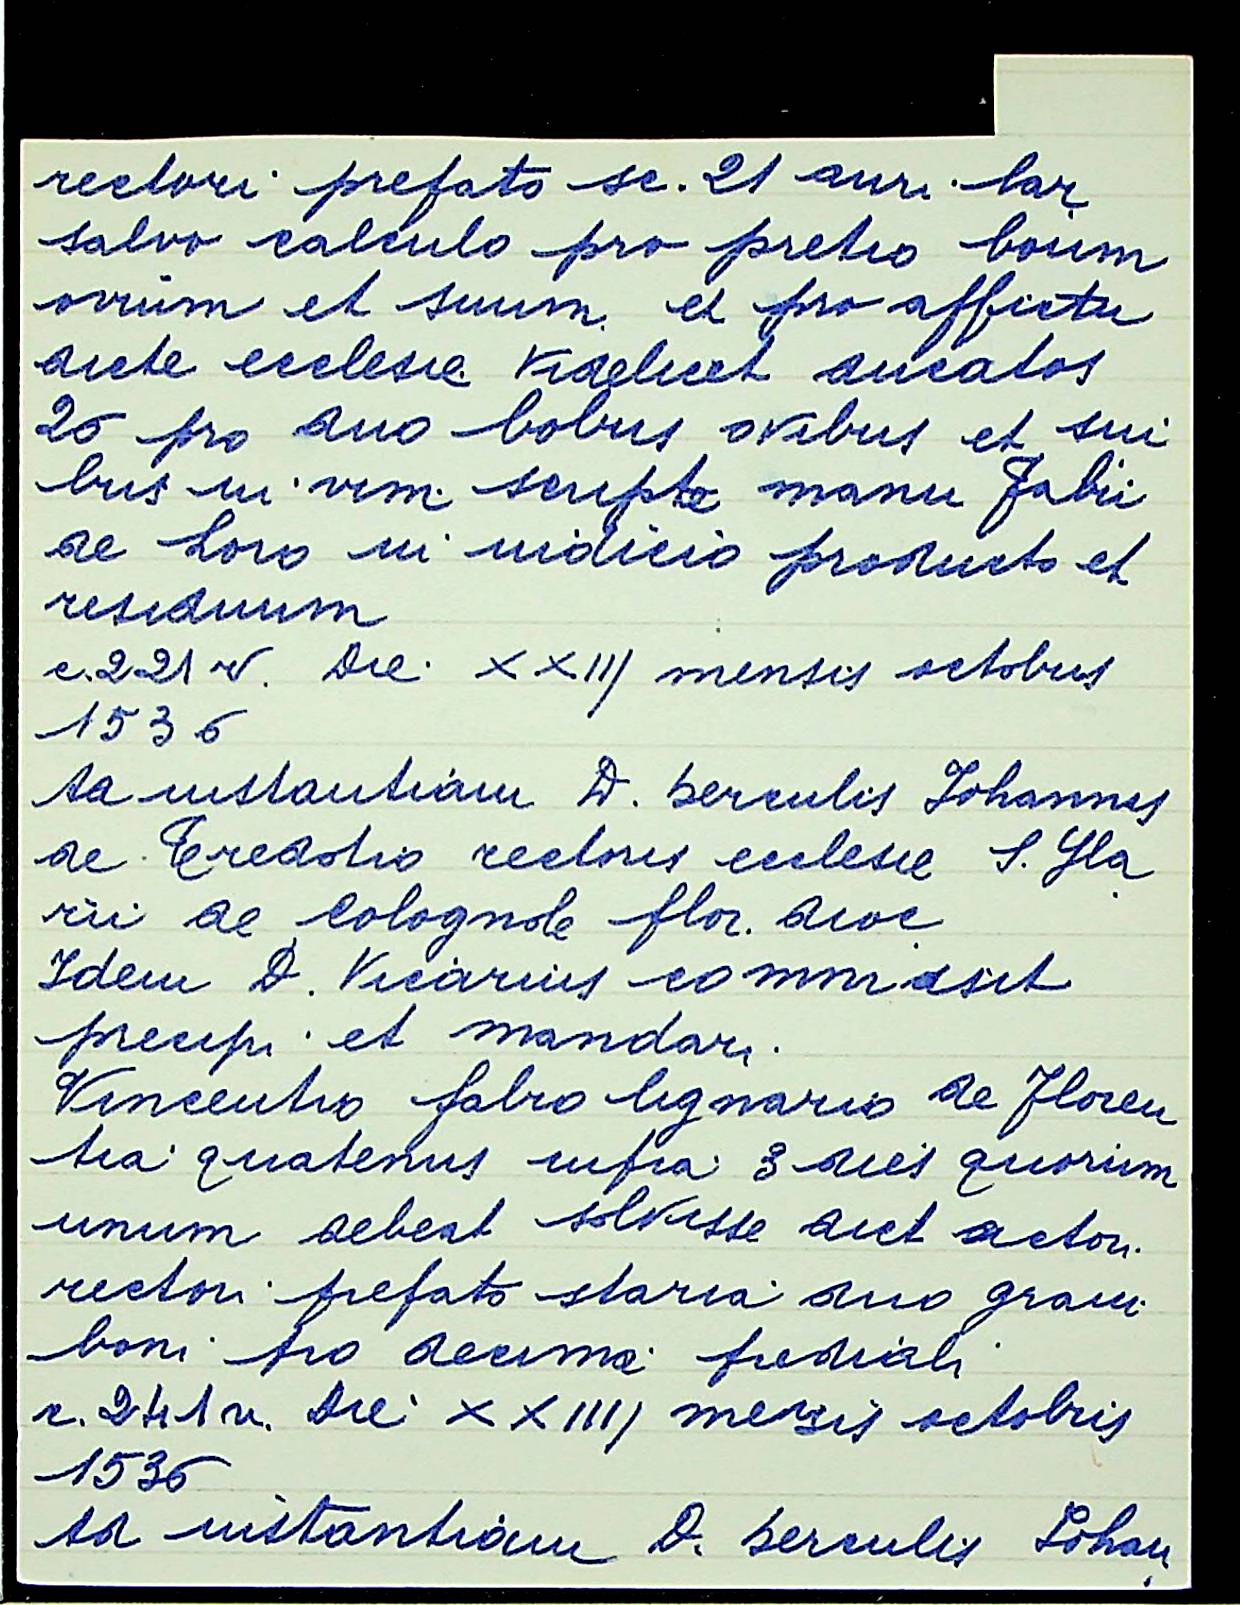 rectori prefato sc. 21 auri lar
salvo calculo pro pretio boum
ovium et suum et pro affictu
dicte ecclesie videlicet ducatos
26 pro duo bobus ovibus et sui
bus in vim scripte manu Fabii
de Loro in iudicio producto et
residuum
c. 221 v. Die XXIIJ mensis octobris
1536
Ad instantiam D. herculis Johannis
de Tredotio rectoris ecclesie S. Yla
rii de Colognole flor. dioc
Idem D. Vicarius commisit
precipi et mandari
Vincentio fabro lignario de Floren
tia quatenus infra 3 dies quorum
unum debeat solvisse dict actori
rectori prefato staria duo grani
boni pro decima prediali
c. 241 v. Die XXIIIJ mensis octobris
1536
Ad instantiam D. herculis Johan